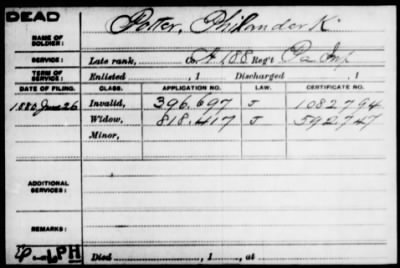 DEAD
NAME OF SOLDIER: Potter, Philander K.
SERVICE: Late rank, Co. A 188 Reg't Pa Inf
TERM OF SERVICE: Enlisted , 1 Discharged , 1
DATE OF FILING. CLASS. APPLICATION NO. LAW. CERTIFICATE NO.
1880 June 26 Invalid, 396.697 J 1082794
Widow, 818.417 J 592747
Minor,
ADDITIONAL SERVICES:
REMARKS:
PH Died , 1 , at